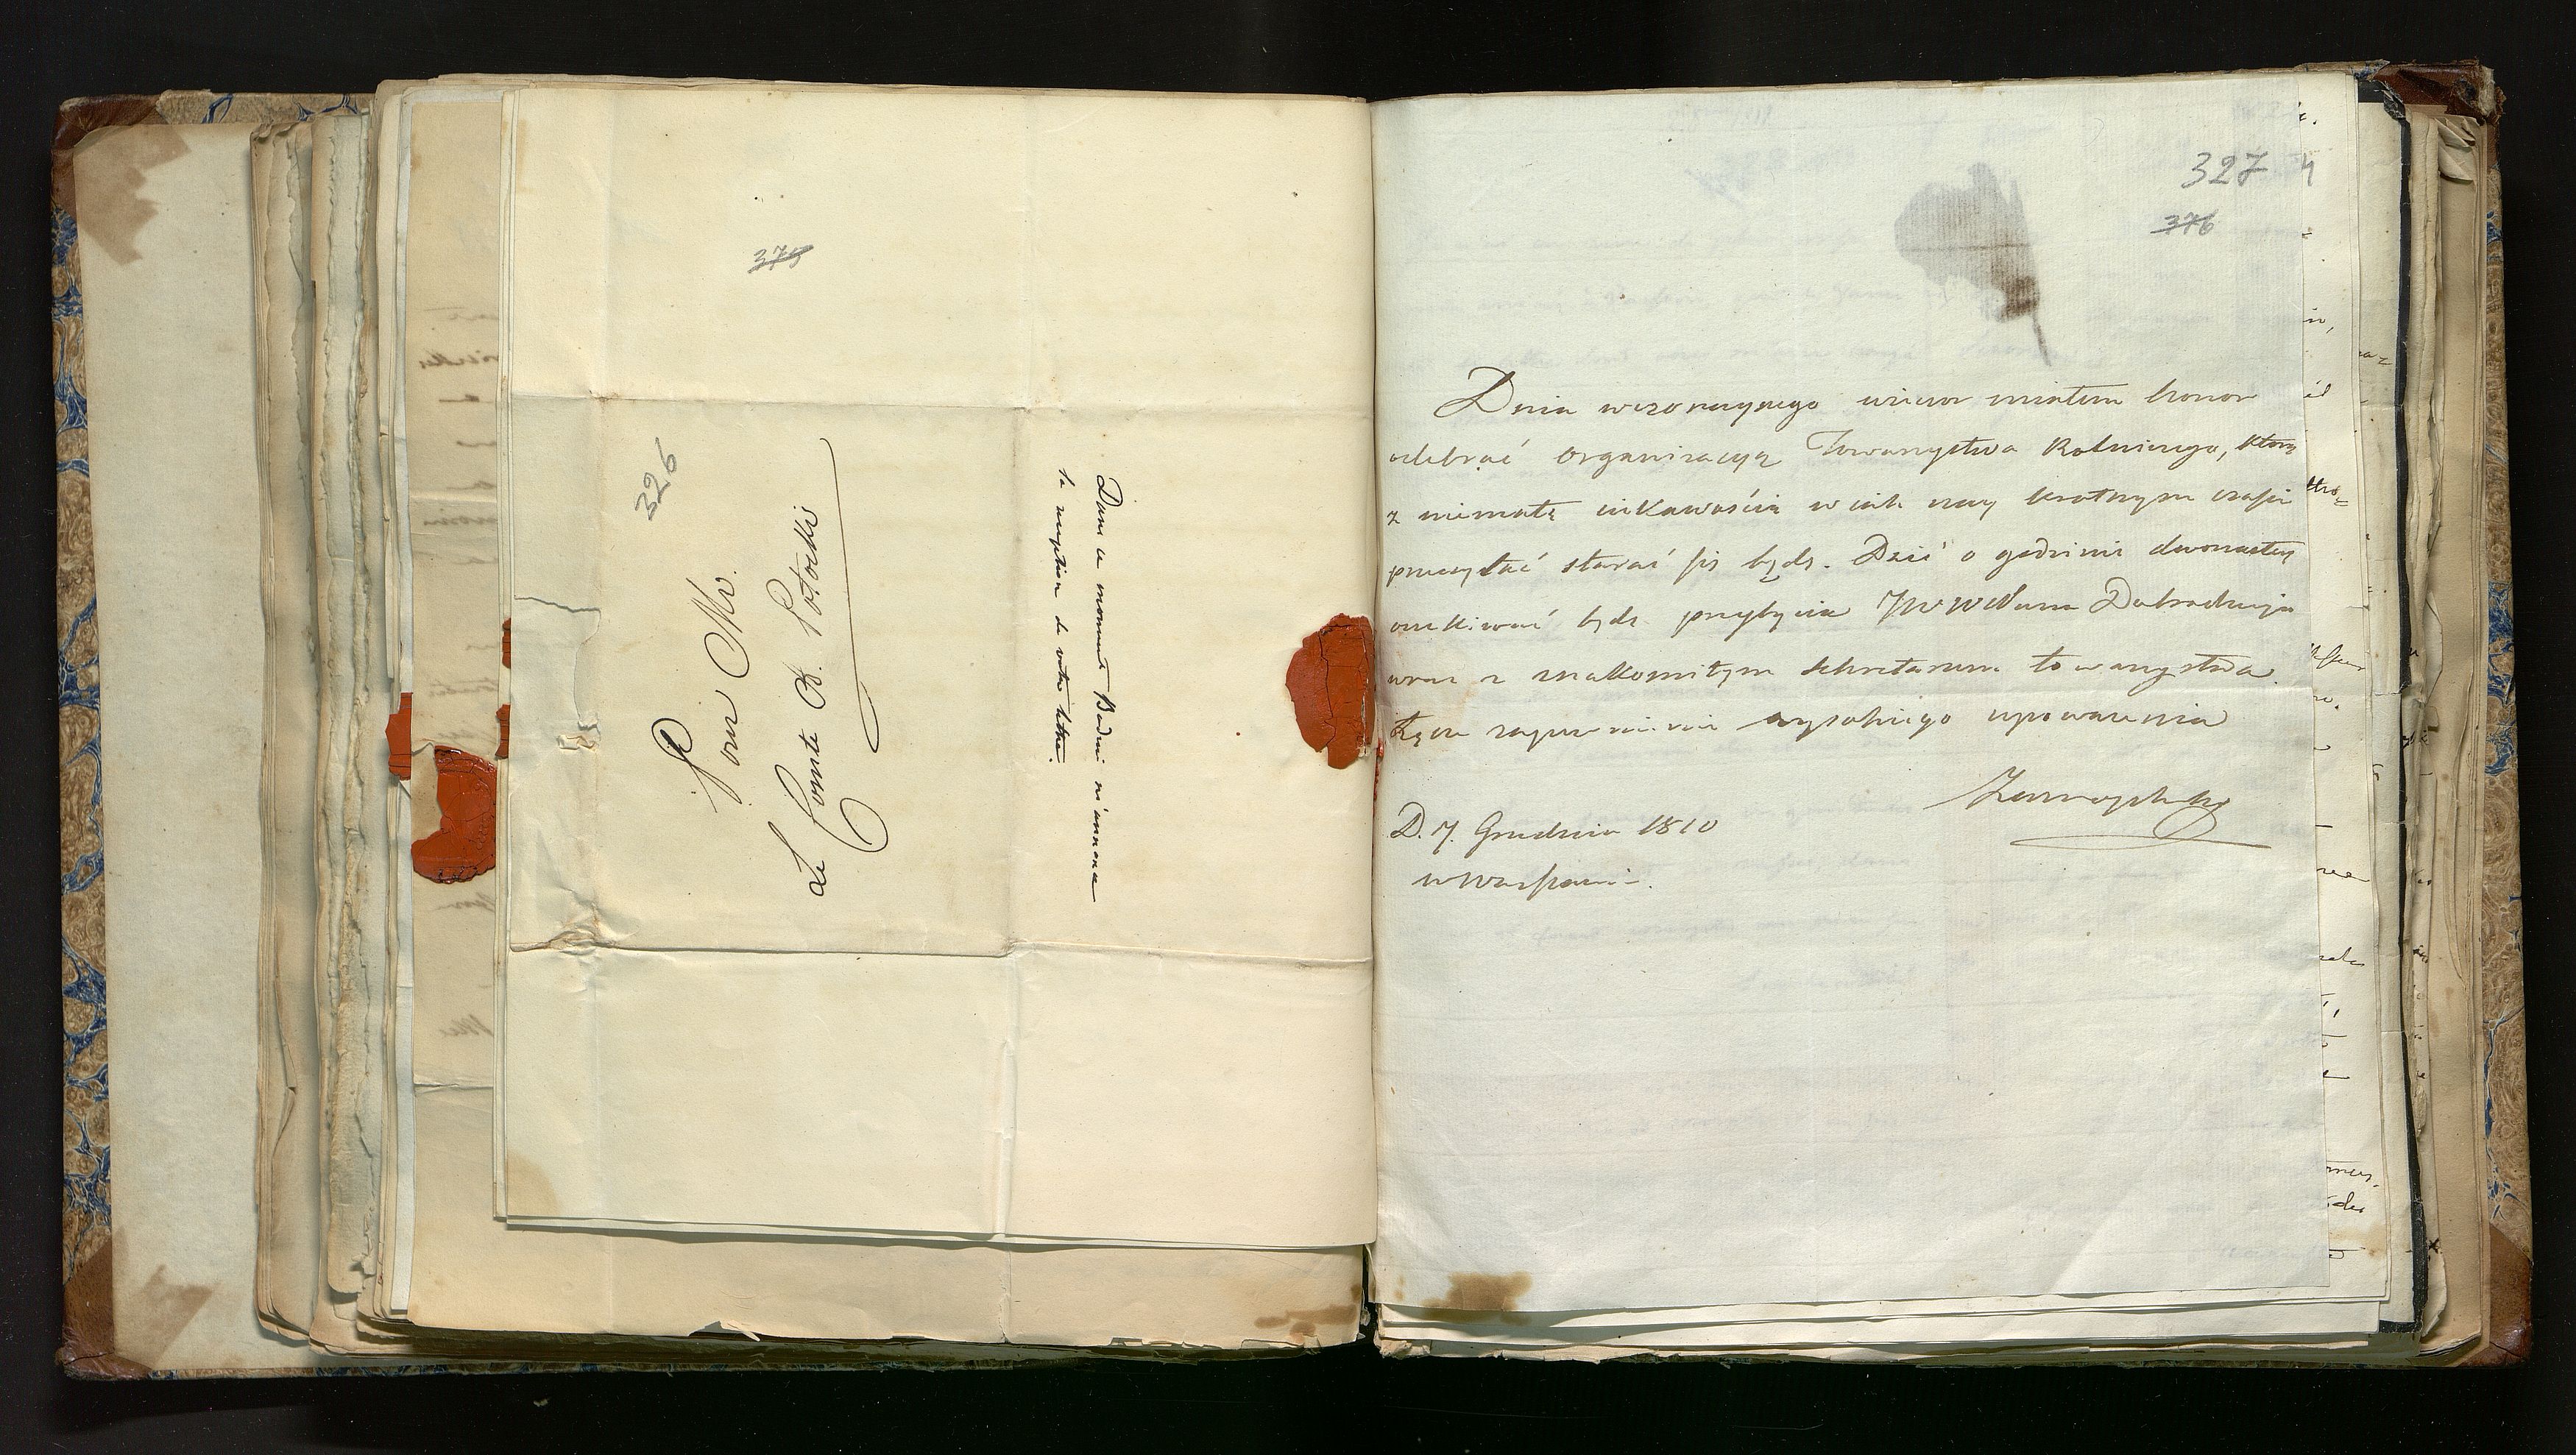 375
326
Pour Mr.
Le Comte A. Potocki
Dans ce moment Badeni m'annonce
la reception de votre lettre.
327
376
Dnia wczorayszego wieczor miałem honor
odebrać Organizacyą Towarzystwa Rolniczego, którą
z niemałą ciekawością w iak nay krotszym czasie
przeczytać starać się będę. Dziś o godzinie dwonastey
oczekiwać będę przybycia JWW Pana Dobrodzieja
wraz z znakomitym sekretarzem towarzystwa.
Łączę zapewnienie wysokiego upoważenia
D. 7. Grudnia 1810
w Warszawie.